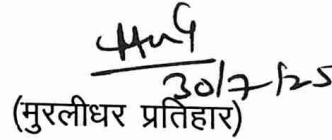 30/7/25
(मुरलीधर प्रतिहार)